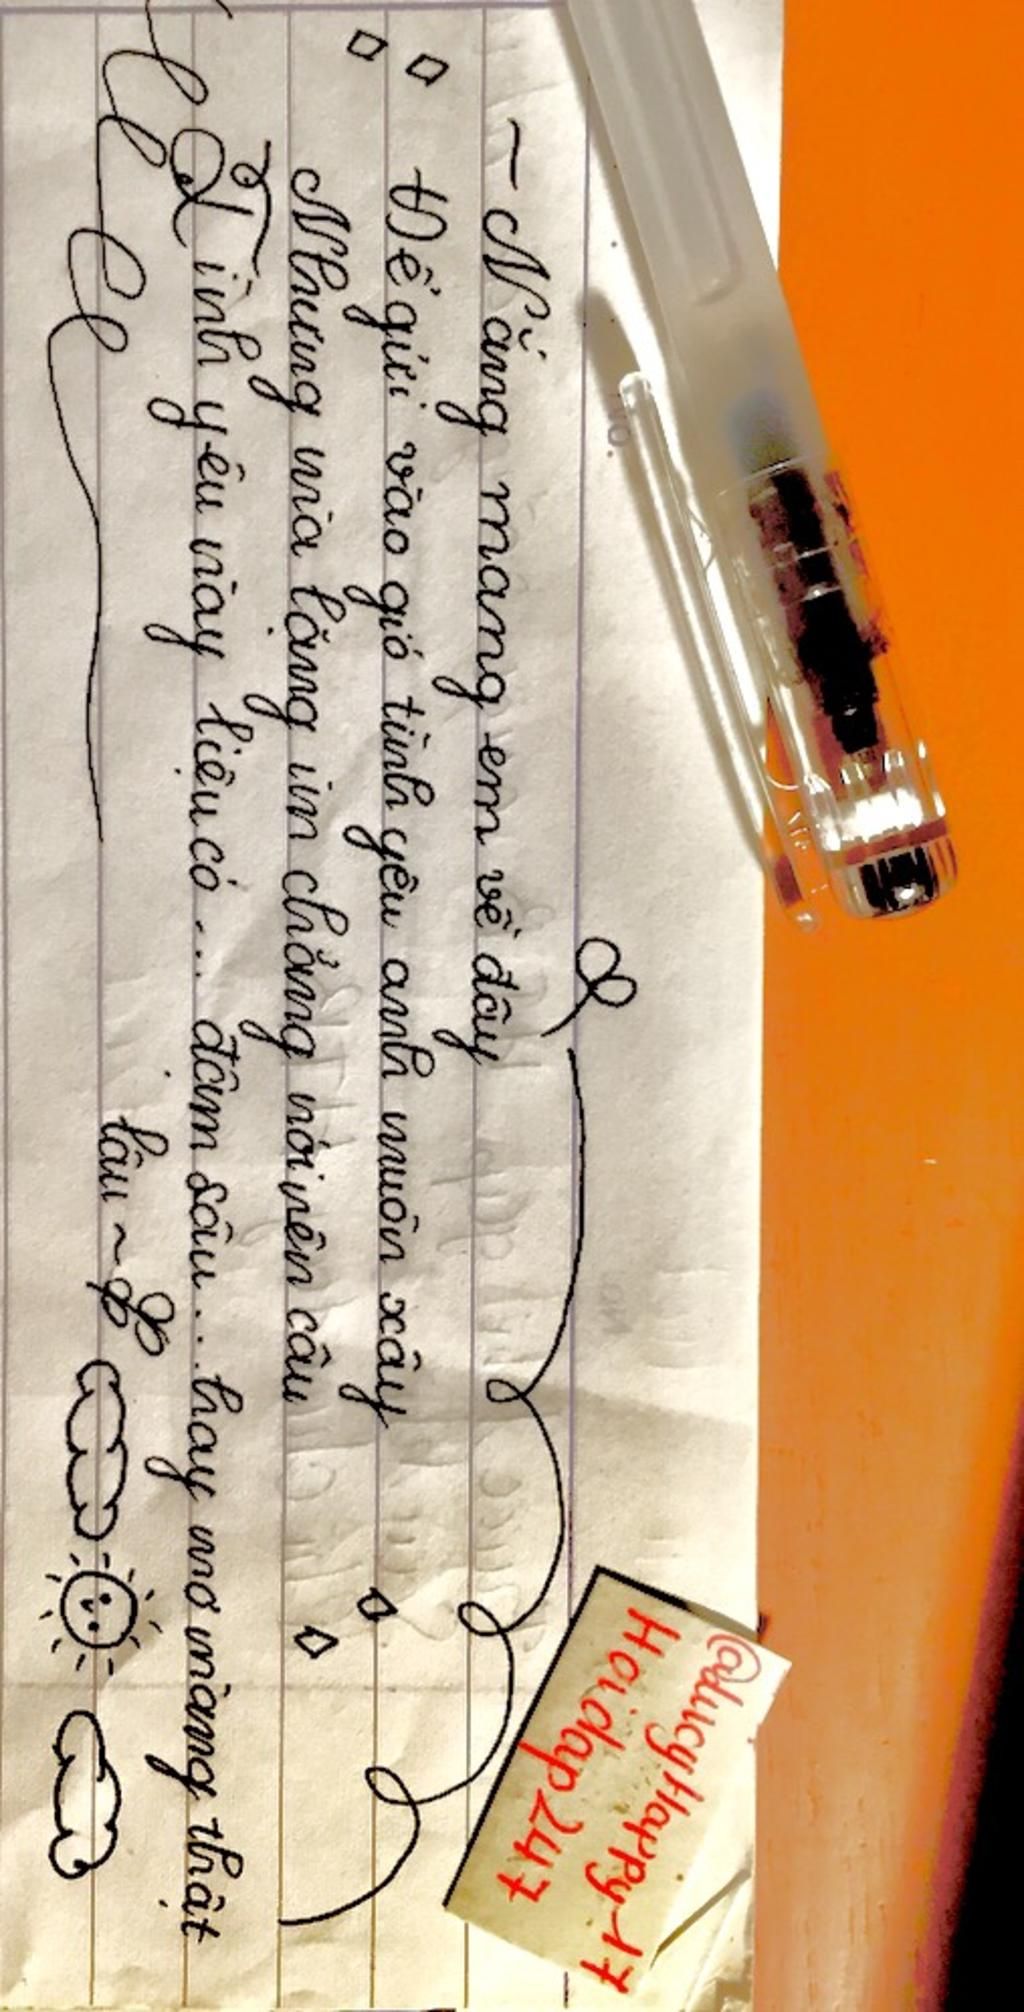 ~ Nắng mang em về đây
Để gửi vào gió tình yêu anh muôn xây
Nhưng mà lặng im chẳng nói nên câu
Tình yêu này liệu có... đậm sâu... hay mơ màng thật
lâu ~
@LucyHappy17
Hoidap247